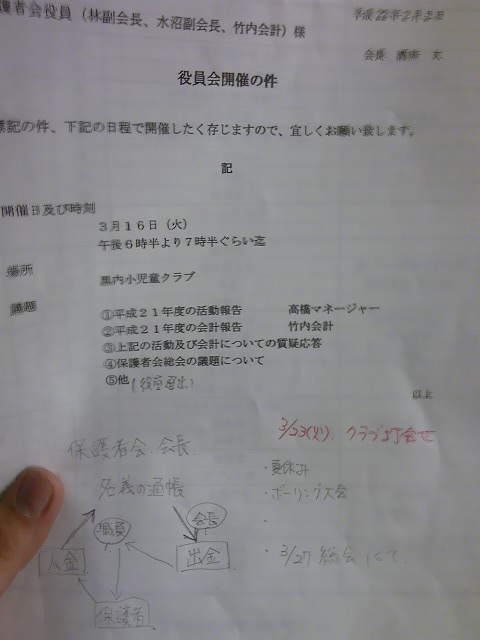 護者会役員（林副会長、水沼副会長、竹内会計）様
平成22年2月
会長
役員会開催の件
標記の件、下記の日程で開催したく存じますので、宜しくお願い致します。
記
開催日及び時刻
3月16日（火）
午後6時半より7時半ぐらい迄
場所
黒内小児童クラブ
議題
①平成21年度の活動報告　高橋マネージャー
②平成21年度の会計報告　竹内会計
③上記の活動及び会計についての質疑応答
④保護者会総会の議題について
⑤他（役員選出）
以上
3/23(火) クラブ打合せ
保護者会 会長
名義の通帳
・夏休み
・ボーリング大会
・
・3/27 総会にて
職員
会長
入金
出金
保護者